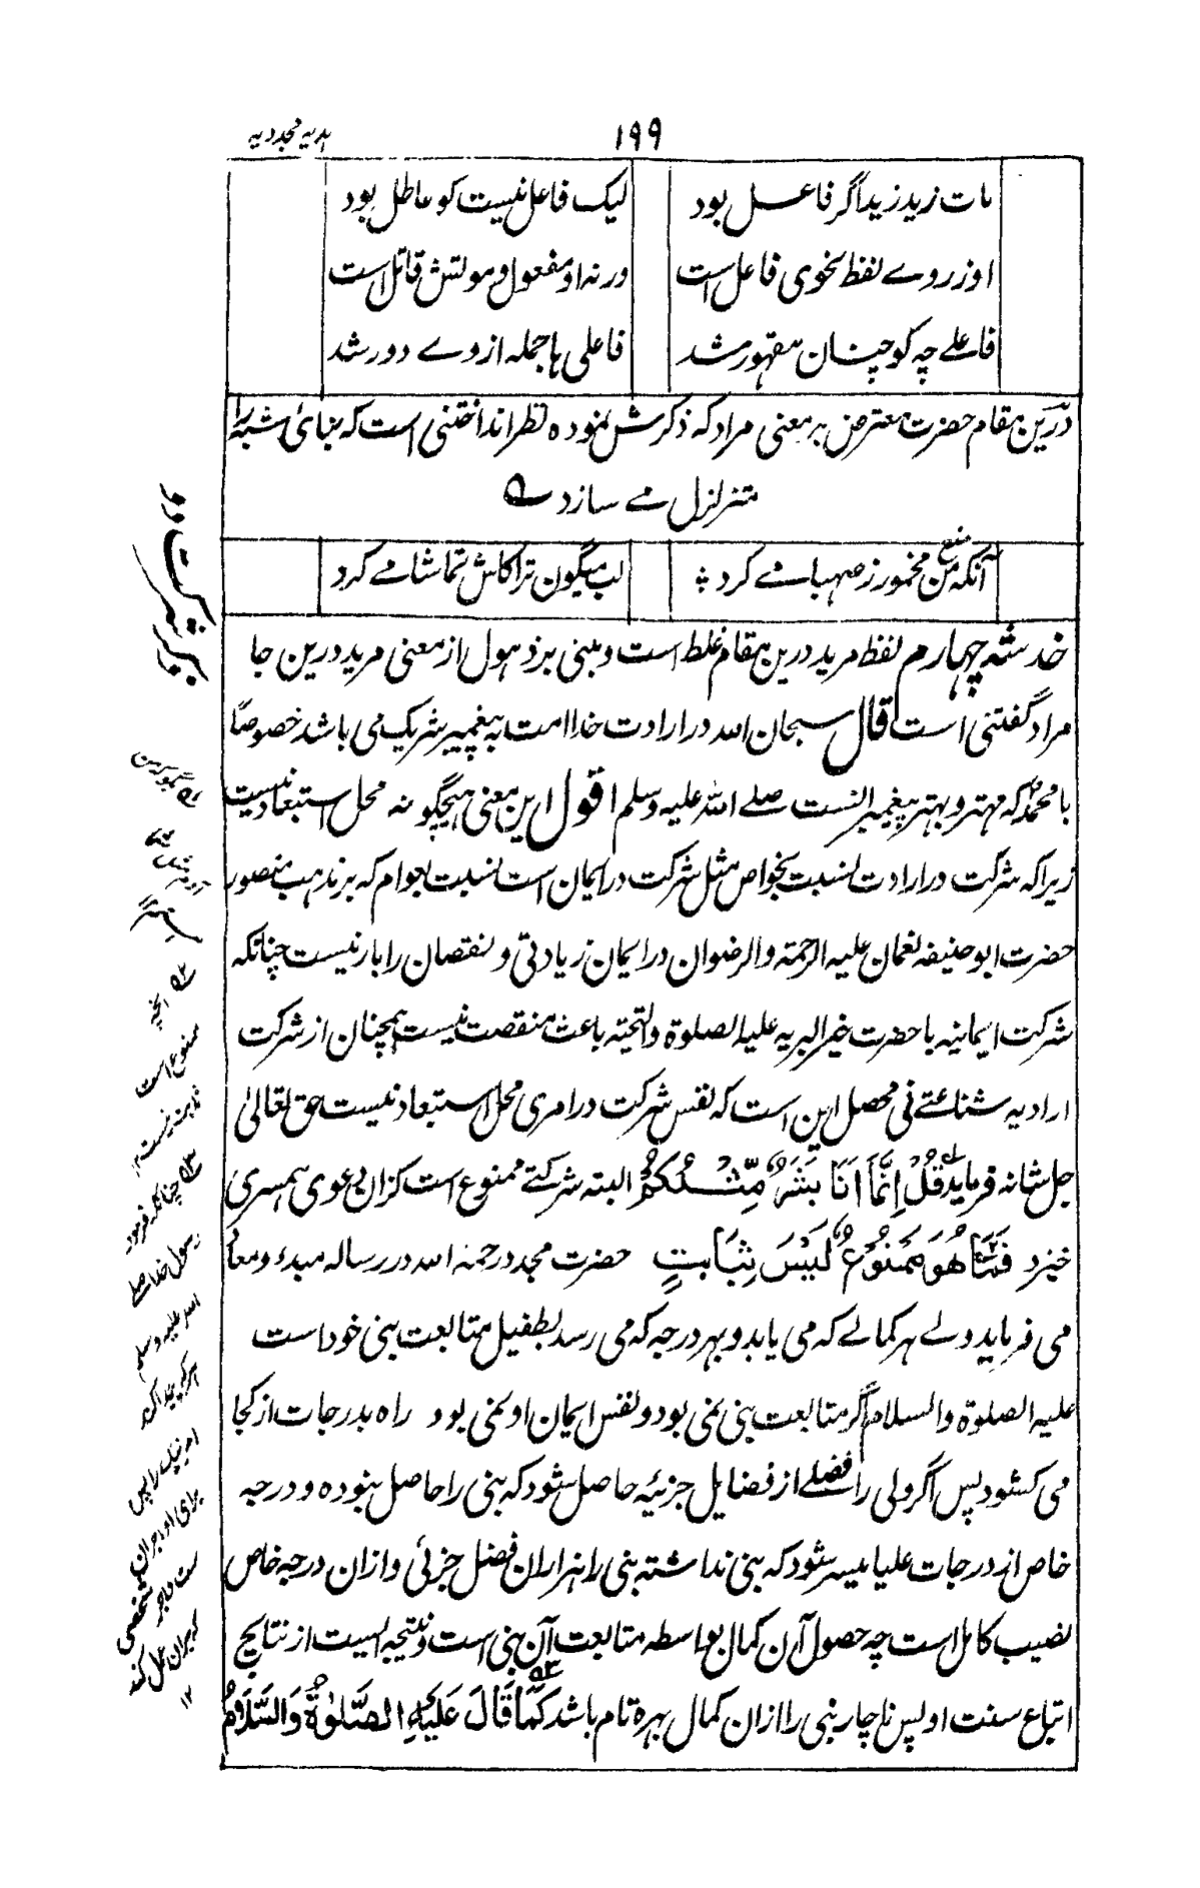 ۱۹۹
ہدیہ مجددیہ
مات زید زید اگر فاعل بود
لیک فاعل نیست کو عاطل بود
او ز روے لفظ نحوی فاعل است
ورنہ او مفعول و موتش قاتل است
فاعلے چہ کو چنان مقہور شد
فاعلی ہا جملہ از وے دور شد
درین مقام حضرت معترض بر معنی مراد کہ ذکرش نمودہ نظر انداختنی است کہ بنای شبہ را
متزلزل مے سازد
آنکہ منع من مخمور ز صہبا مے کرد
لب میگون ترا کاش تماشا مے کرد
خدشہ چہارم لفظ مرید درین مقام غلط است و مبنی بر ذہول از معنی مرید درین جا
مراد گفتنی است قال سبحان اللہ در ارادت خدا امت بہ پیغمبر شریک می باشد خصوصاً
با محمدؐ کہ مہتر و بہتر پیغمبرانست صلے اللہ علیہ وسلم اقول این معنی ہیچگونہ محل استبعاد نیست
زیرا کہ شرکت در ارادت نسبت بخواص مثل شرکت در ایمان است نسبت بعوام کہ بر مذہب منصور
حضرت ابو حنیفہ نعمان علیہ الرحمۃ والرضوان در ایمان زیادتی و نقصان را بار نیست چنانکہ
شرکت ایمانیہ با حضرت خیر البریہ علیہ الصلوۃ والتحیتہ باعث منقصت نیست ہمچنان از شرکت
ارادیہ شناعتے نی محصل این است کہ نفس شرکت در امری محل استبعاد نیست حق تعالیٰ
جل شانہ فرماید قُلْ اِنَّمَآ اَنَا بَشَرٌ مِّثْلُكُمْ البتہ شرکتے ممنوع است کزان دعوی ہمسری
خیزد فَمَا هُوَ مَمْنُوْعٌ لَیْسَ بِثَابِتٍ حضرت مجدد رحمہ اللہ در رسالہ مبدء و معاد
می فرماید ولے ہر کمالے کہ می یابد و بہر درجہ کہ می رسد بطفیل متابعت نبی خود است
علیہ الصلوۃ والسلام اگر متابعت نبی نمی بود و نفس ایمان او نمی بود راہ بدرجات از کجا
می کشود پس اگر ولی را فضلے از فضایل جزئیہ حاصل شود کہ نبی را حاصل نبودہ و درجہ
خاص از درجات علیا میسر شود کہ نبی نداشتہ نبی را نیز از ان فضل جزئی و ازان درجہ خاص
نصیب کامل است چہ حصول آن کمال بواسطہ متابعت آن نبی است و نتیجہ ایست از نتایج
اتباع سنت او پس ناچار نبی را ازان کمال بہرہ تام باشد كَمَا قَالَ عَلَیْهِ الصَّلٰوةُ وَالسَّلَامُ
رسول خدا صلے
اللہ علیہ وسلم
۱۲